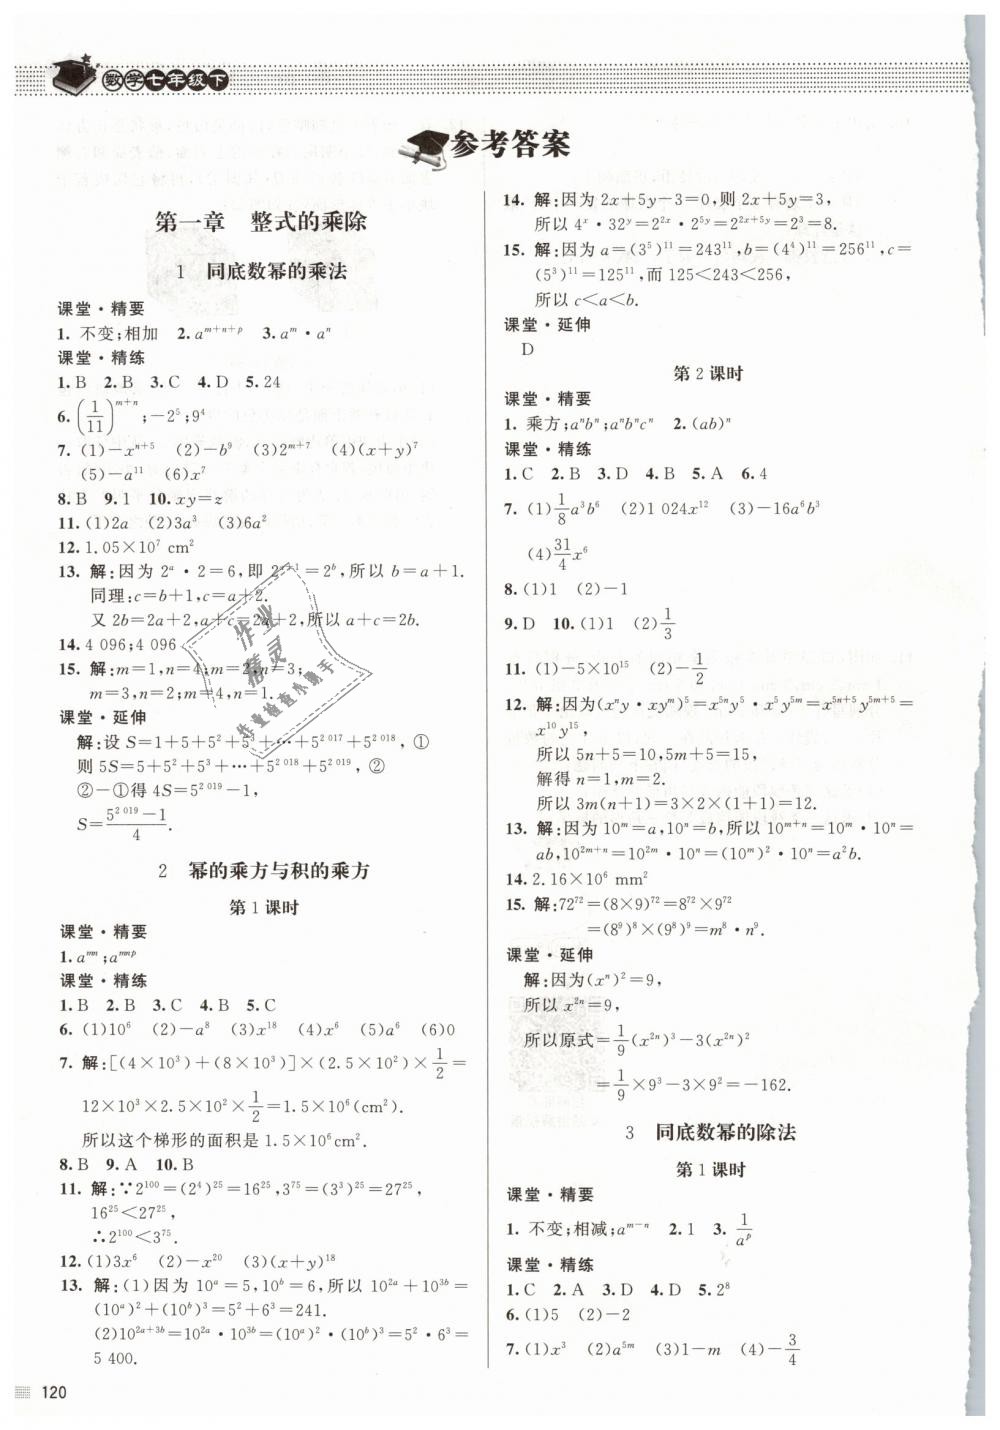 数学七年级下
参考答案
第一章　整式的乘除
1　同底数幂的乘法
课堂·精要
1. 不变;相加　2. a^{m+n+p}　3. a^m·a^n
课堂·精练
1. B　2. B　3. C　4. D　5. 24
6. (1/11)^{m+n};-2^5;9^4
7. (1)-x^{n+5}　(2)-b^9　(3)2^{m+7}　(4)(x+y)^7
(5)-a^{11}　(6)x^7
8. B　9. 1　10. xy=z
11. (1)2a　(2)3a^3　(3)6a^2
12. 1.05×10^7 cm^2
13. 解:因为 2^a·2=6,即 2^{a+1}=2^b,所以 b=a+1.
同理:c=b+1,c=a+2.
又 2b=2a+2,a+c=2a+2,所以 a+c=2b.
14. 4 096;4 096
15. 解:m=1,n=4;m=2,n=3;
m=3,n=2;m=4,n=1.
课堂·延伸
解:设 S=1+5+5^2+5^3+…+5^{2 017}+5^{2 018},①
则 5S=5+5^2+5^3+…+5^{2 018}+5^{2 019},②
②-①得 4S=5^{2 019}-1,
S=(5^{2 019}-1)/4.
2　幂的乘方与积的乘方
第 1 课时
课堂·精要
1. a^{mn};a^{mnp}
课堂·精练
1. B　2. B　3. C　4. B　5. C
6. (1)10^6　(2)-a^8　(3)x^{18}　(4)x^6　(5)a^6　(6)0
7. 解:[(4×10^3)+(8×10^3)]×(2.5×10^2)×1/2=
12×10^3×2.5×10^2×1/2=1.5×10^6(cm^2).
所以这个梯形的面积是 1.5×10^6cm^2.
8. B　9. A　10. B
11. 解:∵2^{100}=(2^4)^{25}=16^{25},3^{75}=(3^3)^{25}=27^{25},
16^{25}<27^{25},
∴2^{100}<3^{75}.
12. (1)3x^6　(2)-x^{20}　(3)(x+y)^{18}
13. 解:(1)因为 10^a=5,10^b=6,所以 10^{2a}+10^{3b}=
(10^a)^2+(10^b)^3=5^2+6^3=241.
(2)10^{2a+3b}=10^{2a}·10^{3b}=(10^a)^2·(10^b)^3=5^2·6^3=
5 400.
120
14. 解:因为 2x+5y-3=0,则 2x+5y=3,
所以 4^x·32^y=2^{2x}·2^{5y}=2^{2x+5y}=2^3=8.
15. 解:因为 a=(3^5)^{11}=243^{11},b=(4^4)^{11}=256^{11},c=
(5^3)^{11}=125^{11},而 125<243<256,
所以 c<a<b.
课堂·延伸
D
第 2 课时
课堂·精要
1. 乘方;a^nb^n;a^nb^nc^n　2. (ab)^n
课堂·精练
1. C　2. B　3. D　4. B　5. A　6. 4
7. (1)1/8a^3b^6　(2)1 024x^{12}　(3)-16a^6b^3
(4)31/4x^6
8. (1)1　(2)-1
9. D　10. (1)1　(2)1/3
11. (1)-5×10^{15}　(2)-1/2
12. 解:因为(x^ny·xy^m)^5=x^{5n}y^5·x^5y^{5m}=x^{5n+5}y^{5m+5}=
x^{10}y^{15},
所以 5n+5=10,5m+5=15,
解得 n=1,m=2.
所以 3m(n+1)=3×2×(1+1)=12.
13. 解:因为 10^m=a,10^n=b,所以 10^{m+n}=10^m·10^n=
ab,10^{2m+n}=10^{2m}·10^n=(10^m)^2·10^n=a^2b.
14. 2.16×10^6 mm^2
15. 解:72^{72}=(8×9)^{72}=8^{72}×9^{72}
=(8^9)^8×(9^8)^9=m^8·n^9.
课堂·延伸
解:因为(x^n)^2=9,
所以 x^{2n}=9,
所以原式=1/9(x^{2n})^3-3(x^{2n})^2
=1/9×9^3-3×9^2=-162.
3　同底数幂的除法
第 1 课时
课堂·精要
1. 不变;相减;a^{m-n}　2. 1　3. 1/a^p
课堂·精练
1. C　2. A　3. D　4. D　5. 2^8
6. (1)5　(2)-2
7. (1)x^3　(2)a^{5m}　(3)1-m　(4)-3/4
作业
精灵
作业检查小助手